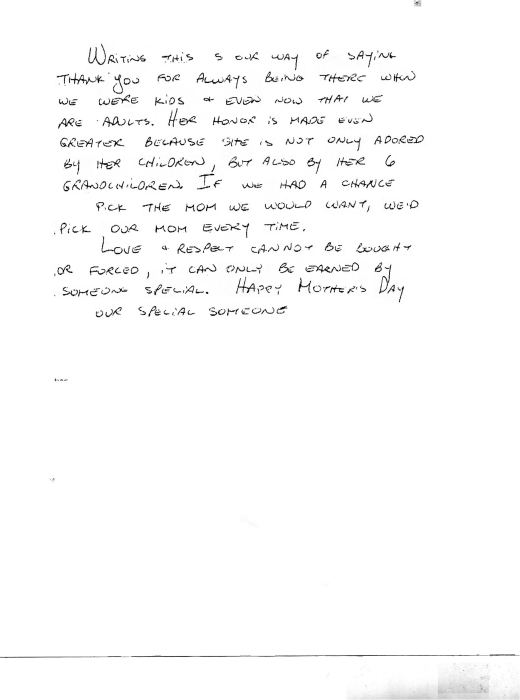 WRITING THIS IS OUR WAY OF SAYING
THANK YOU FOR ALWAYS BEING THERE WHEN
WE WERE KIDS & EVEN NOW THAT WE
ARE ADULTS. HER HONOR IS MADE EVEN
GREATER BECAUSE SHE IS NOT ONLY ADORED
BY HER CHILDREN, BUT ALSO BY HER 6
GRANDCHILDREN. IF WE HAD A CHANCE
PICK THE MOM WE WOULD WANT, WE'D
PICK OUR MOM EVERY TIME.
LOVE & RESPECT CANNOT BE BOUGHT
OR FORCED, IT CAN ONLY BE EARNED BY
SOMEONE SPECIAL. HAPPY MOTHER'S DAY
OUR SPECIAL SOMEONE